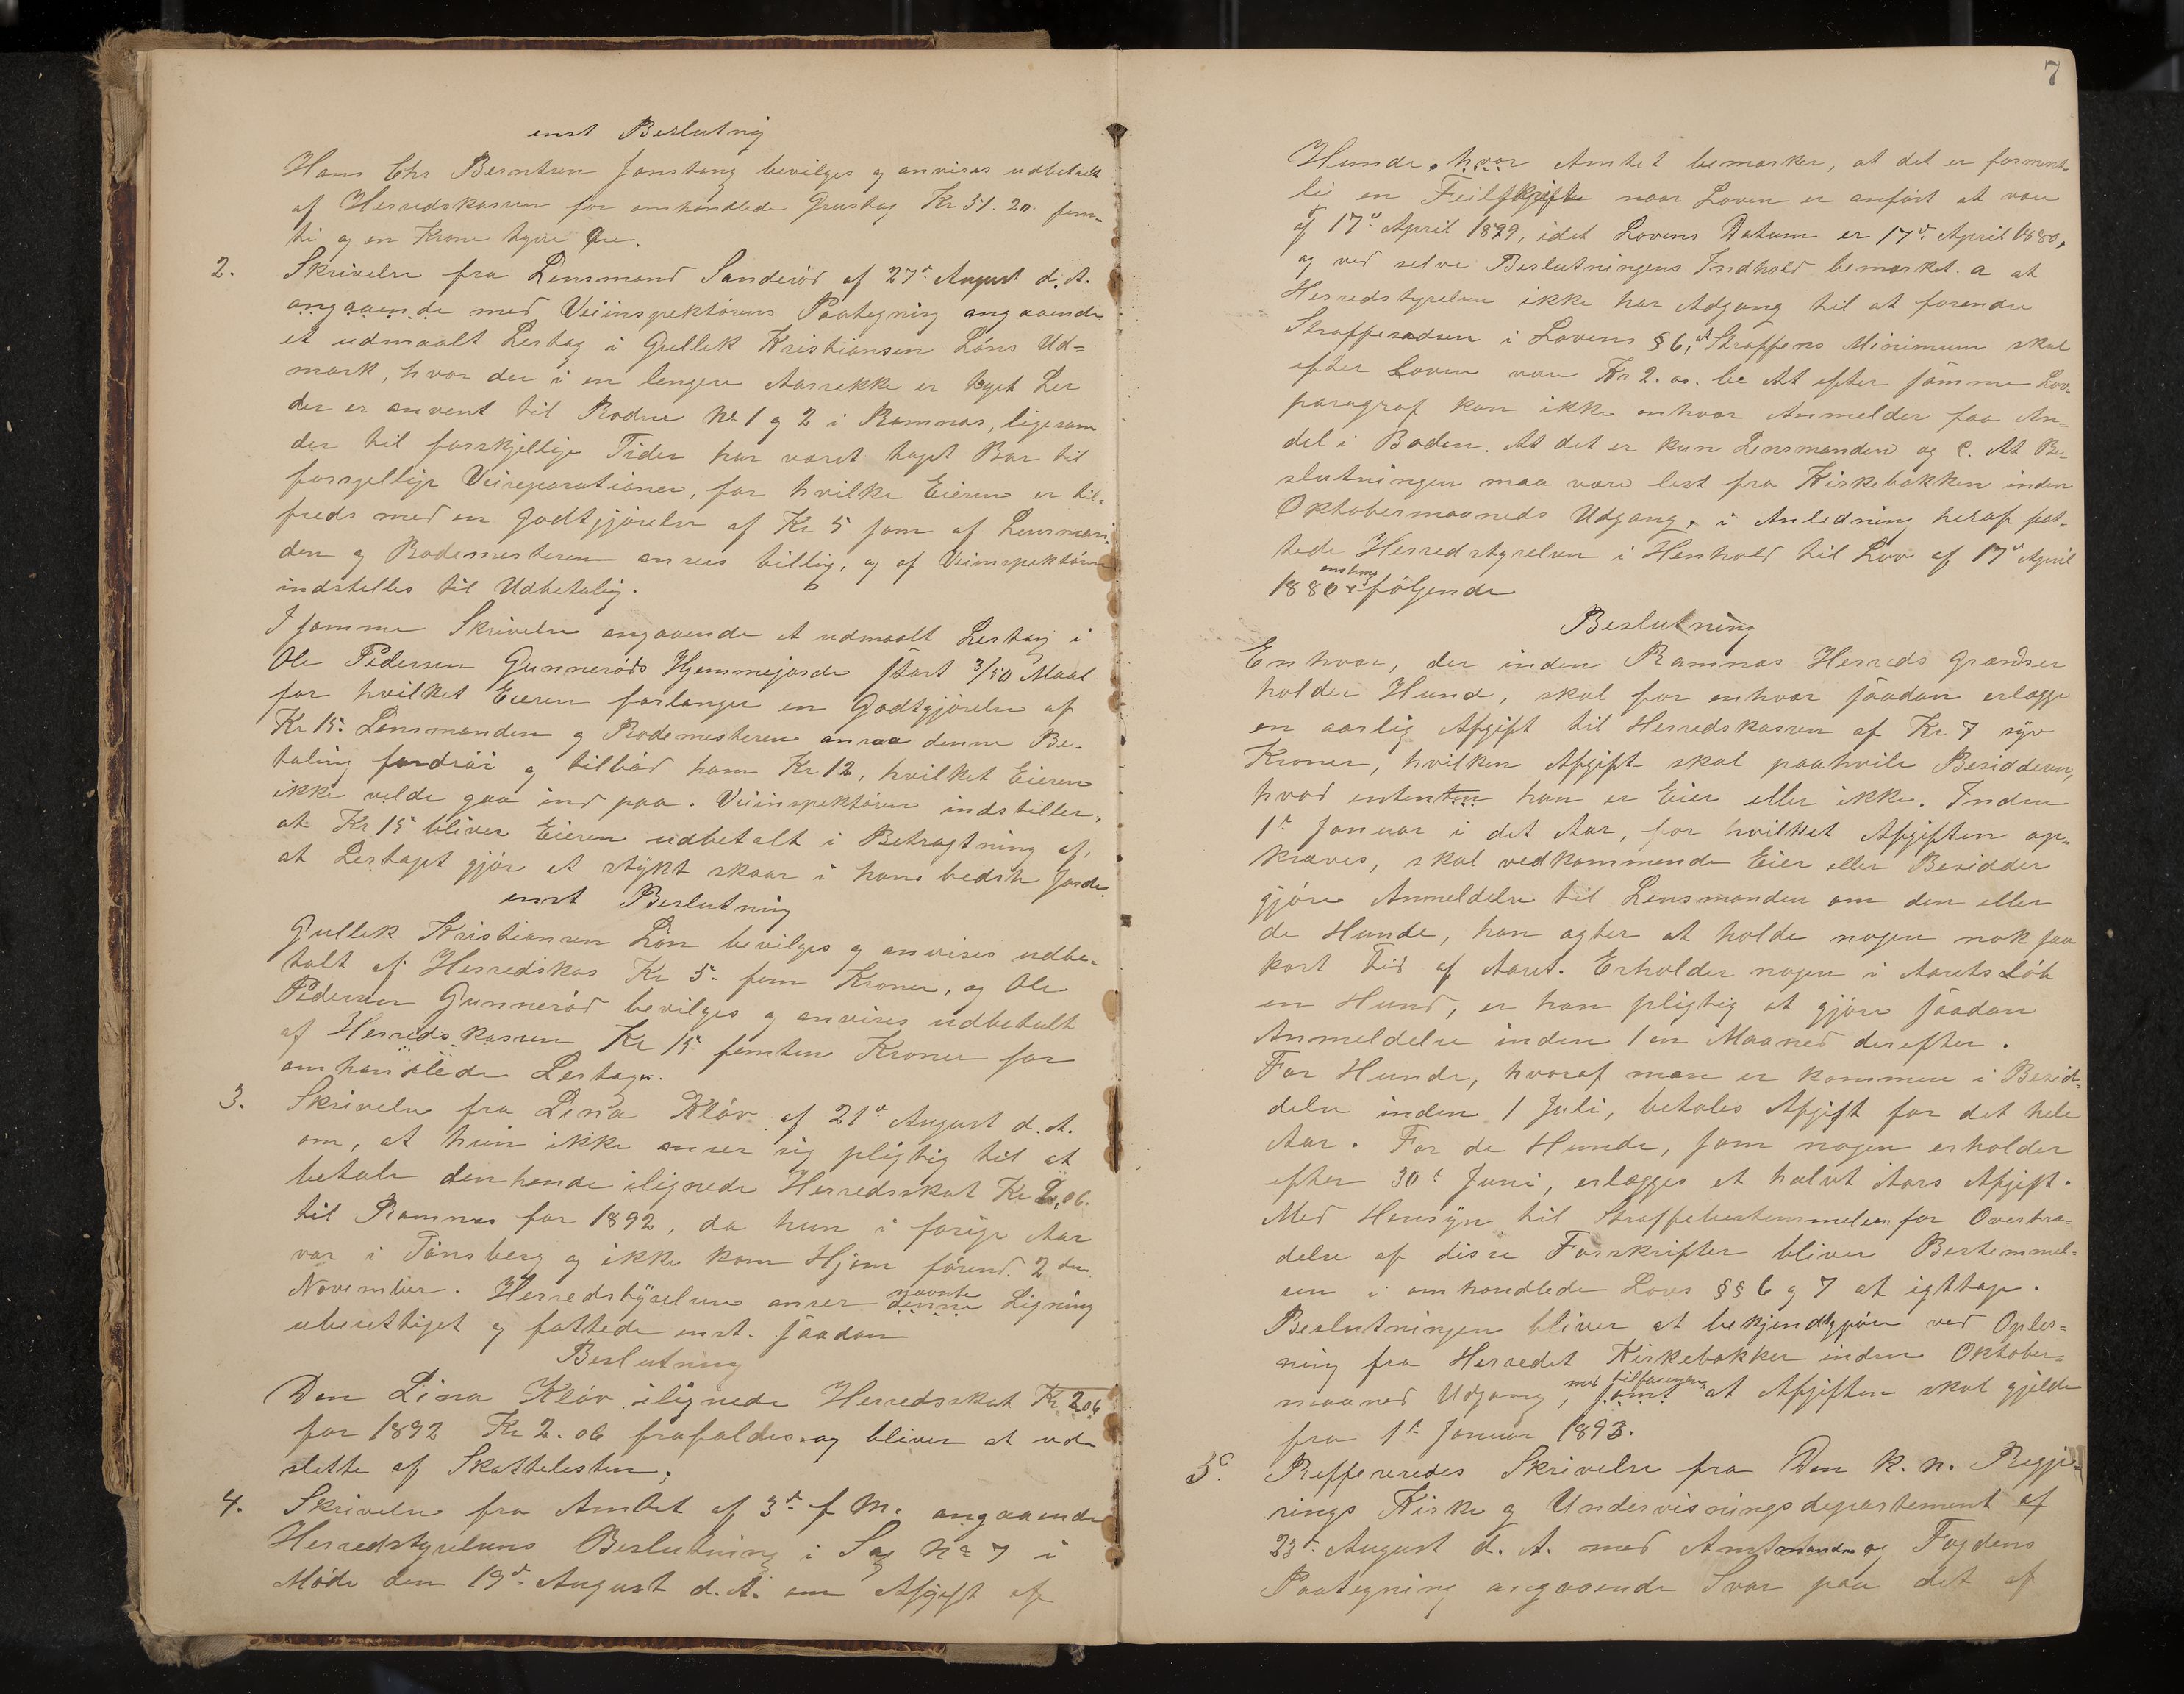 enst Beslutnig
Hans Chr Berntsen Jonstang bevilges og anvises udbetalt
af Herredskassen for omhandlede Grustag Kr 51.20. fem-
ti og en Krone tyve Øre.
2. Skrivelse fra Lensmand Sanderöd af 27de August d. A.
angaaende med Veiinspektörens Paategning angaaende
et udmaalt Lertag i Gullik Kristiansen Löns Ud=
mark, hvor der i en lengere Aarrekke er taget Ler
der er anvent til Rodene No 1 og 2 i Ramnæs, ligesom
der til forskjellige Tider har været taget Bar til
forsjellige Veireparationer, for hvilke Eieren er til-
freds med en Godtgjörelse af Kr 5 som af Lensman-
den og Rodemesteren ansees billig, og af Veiinspektören
indstelles til Udbetalig.
I samme Skrivelse angaaende et udmaalt Lertag i
Ole Pedersen Gunneröds Hjemmejorde stort 3/50 Maal
for hvilket Eieren forlanger en Godtgjörelse af
Kr 15. Lensmanden og Rodemesteren ansaa denne Be-
taling for diär og tilböd ham Kr 12, hvilket Eieren
ikke vilde gaa ind paa. Veiinspektören indstiller,
at Kr 15 bliver Eieren udbetalt i Betragtning af,
at Lertaget gjör et stÿkt skaar i hans bedste Jorde.
enst Beslutning
Gullik Kristiansen Lön bevilges og anvises udbe-
talt af Herredskas Kr 5- fem Kroner, og Ole
Pedersen Gunneröd bevilges og anvises udbetalt
af Herredskassen Kr 15 femten Kroner for
omhandlede Lertager.
3. Skrivelse fra Lina Klöv af 21de August d. A.
om, at hun ikke anser sig pligtig til at
betale den hende ilignede Herredsskat Kr 2,06.
til Ramnæs for 1892, da hun i forige Aar
var i Tönsberg og ikke kom Hjem förend 2den
November. Herredstÿrelsen anser nævnte denne Ligning
uberettiget og fattede enst. saadan
Beslutning
Den Lina Klöv ilignede Herredsskat Kr 206
for 1892 Kr 2.06 frafaldes og bliver at ud-
slette af Skattelisten.
4. Skrivelse fra Amtet af 3de f M. angaaende
Herredstyrelsens Beslutning i Sag No 7 i
Möde den 19de August d. A. om Afgift af
7
Hunde, hvor Amtet bemærker, at det er forment-
lig en Feilskrift naar Loven er anfört at være
af 17de April 1899, idet Lovens Datum er 17de April 1880,
og ved selve Beslutningens Indhold bemærket. a at
Herredstyrelsen ikke har Adgang til at forandre
Straffesadsen i Lovens § 6, at Straffens Minimum skal
efter Loven være Kr 2. oo. be At efter samme Lov-
paragraf kan ikke enhver Anmelder faa An-
del i Boden. At det er kun Lensmanden og c. At Be-
slutningen maa være lest fra Kirkebakken inden
Oktobermaaneds Udgang, i Anledning heraf fat-
tede Herredstyrelsen i Henhold til Lov af 17de April
1880 enstemg følgende
Beslutning
Enhver, der inden Ramnæs Herreds Grændser
holder Hund, skal for enhver saadan erlægge
en aarlig Afgift til Herredskassen af Kr 7 syv
Kroner, hvilken Afgift skal paahvile Besidderen,
hvad enten han er Eier eller ikke. Inden
1de Januar i det Aar, for hvilket Afgiften op-
kræves, skal vedkommende Eier eller Besidder
gjöre Anmeldelse til Lensmanden om den eller
de Hunde, han agter at holde nogen nok saa
kort Tid af Aaret. Erholder nogen i Aarets Löb
en Hund, er han pligtig at gjöre saadan
Anmeldelse inden 1 en Maaned derefter.
For Hunde, hvoraf man er kommen i Besid-
delse inden 1 Juli, betales Afgift for det hele
Aar. For de Hunde, som nogen erholder
efter 30de Juni, erlægges et halvt Aars Afgift.
Med Hensÿn til Straffebestemmelsen for Overtræ-
delse af disse Forskrifter bliver Bestemmel-
sen i omhandlede Lovs §§ 6 og 7 at igttage.
Beslutningen bliver at bekjendtgjöre ved Oples=
ning fra Herredet Kirkebakker inden Oktober-
maaned Udgang, med tilföiende samt at Afgiften skal gjelde
fra 1de Januar 1893.
5. Reffereredes Skrivelse fra Den k. n. Regje-
rings Kirke og Undervisningsdepartement af
23de August d. A. med Amtmanden og Fogdens
Paategning angaaende Svar paa det af